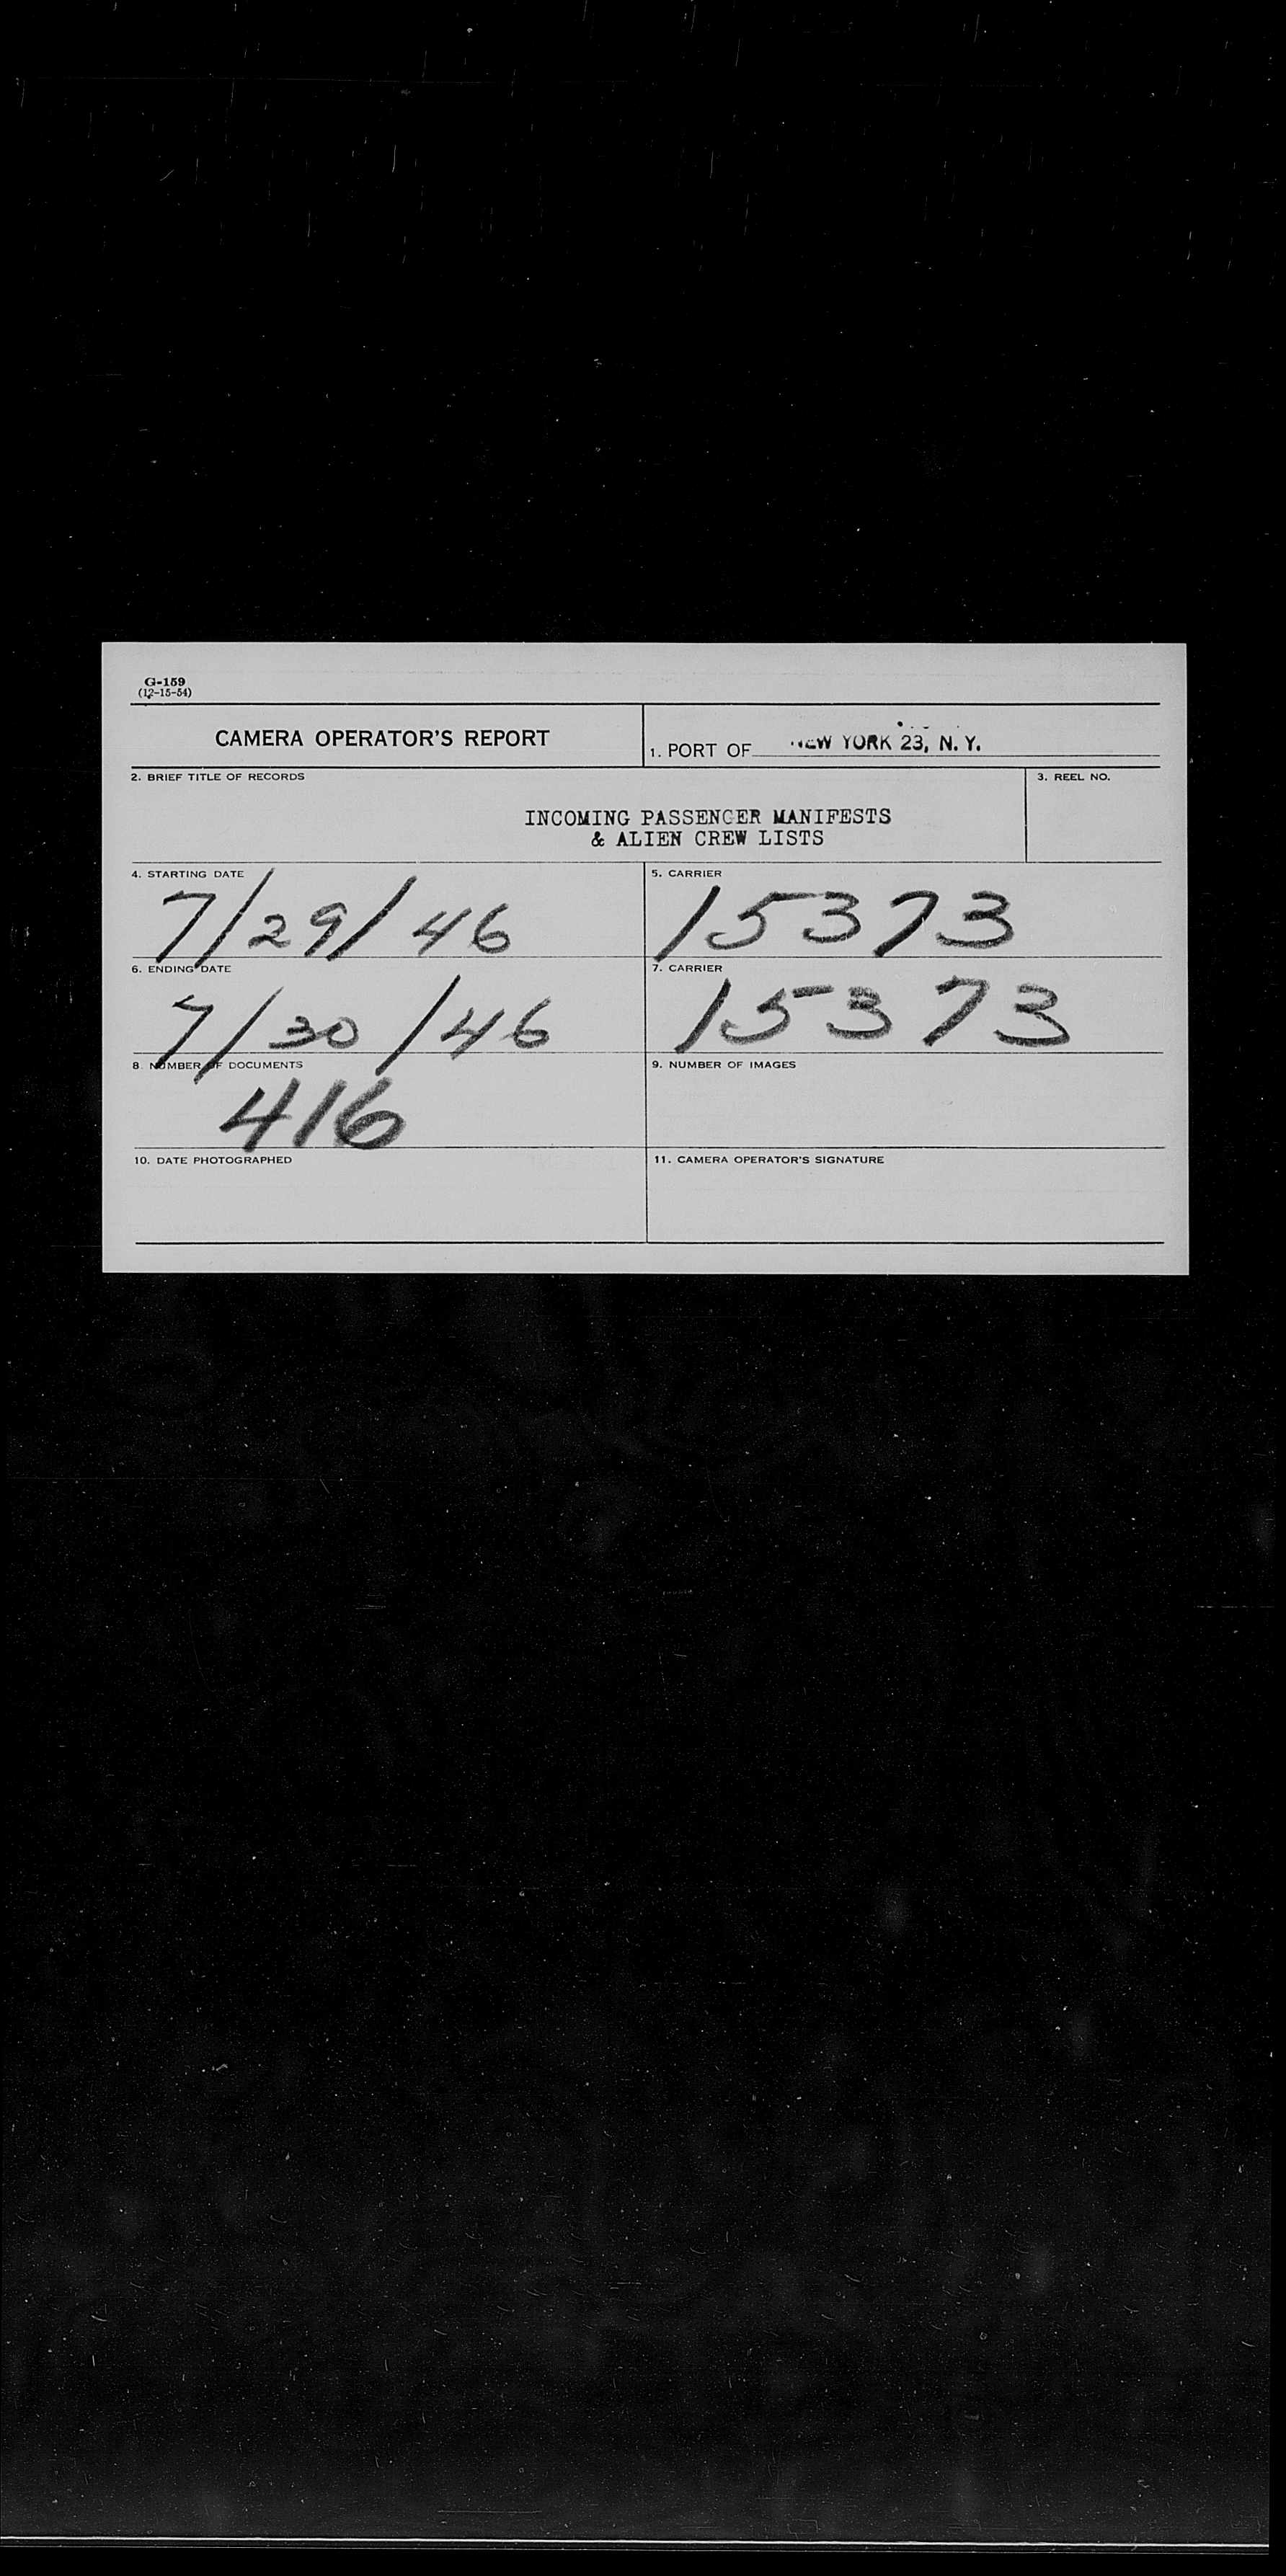 G-159
(12-15-54)
CAMERA OPERATOR'S REPORT
1. PORT OF NEW YORK 23, N. Y.
2. BRIEF TITLE OF RECORDS
3. REEL NO.
INCOMING PASSENGER MANIFESTS
& ALIEN CREW LISTS
4. STARTING DATE
7/29/46
5. CARRIER
15373
6. ENDING DATE
7/30/46
7. CARRIER
15373
8. NUMBER OF DOCUMENTS
416
9. NUMBER OF IMAGES
10. DATE PHOTOGRAPHED
11. CAMERA OPERATOR'S SIGNATURE